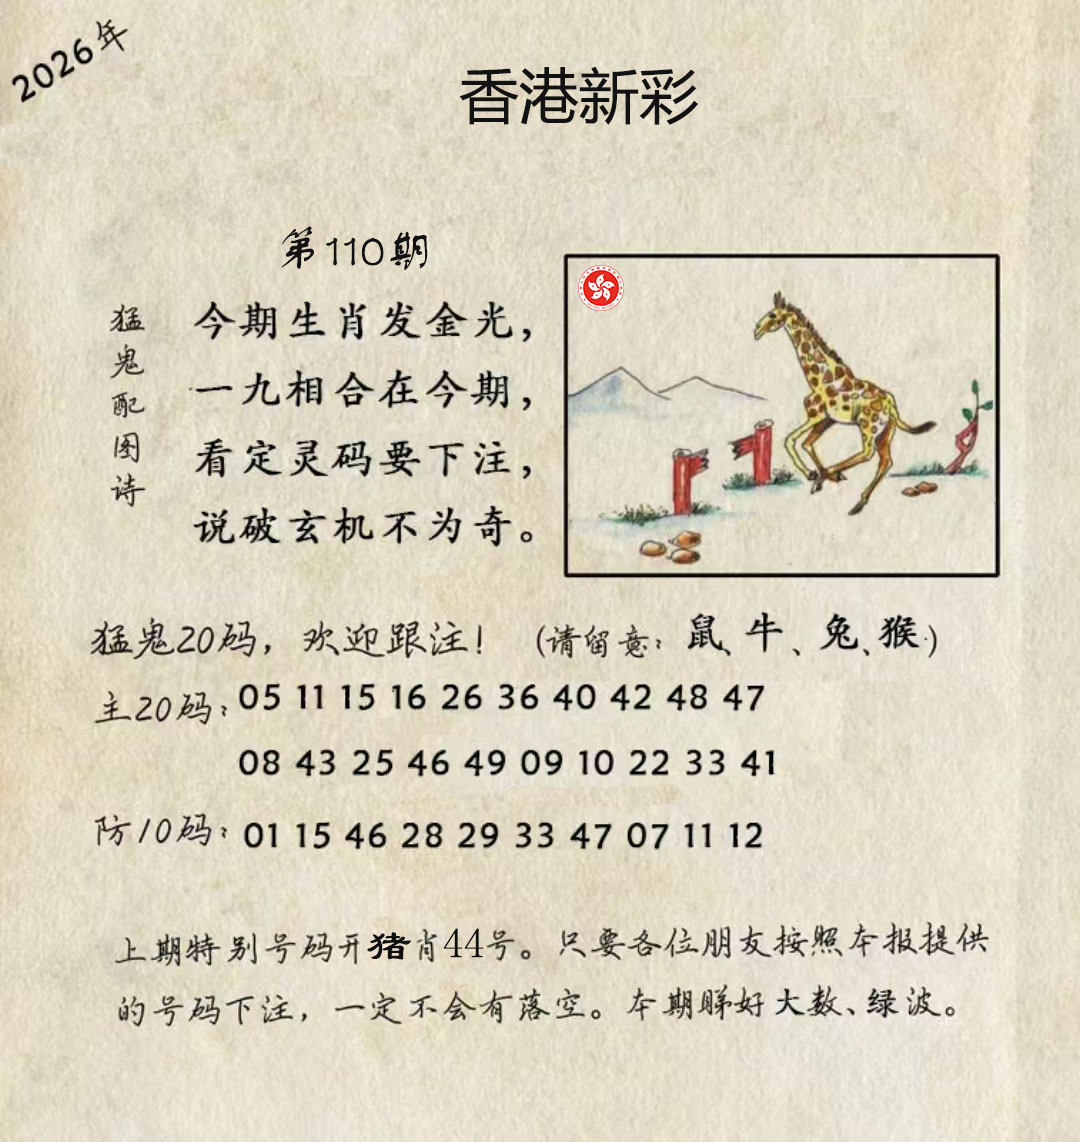 2026年
香港新彩
第110期
猛鬼配图诗
今期生肖发金光，
一九相合在今期，
看定灵码要下注，
说破玄机不为奇。
猛鬼20码，欢迎跟注！（请留意：鼠、牛、兔、猴）
主20码：05 11 15 16 26 36 40 42 48 47
08 43 25 46 49 09 10 22 33 41
防10码：01 15 46 28 29 33 47 07 11 12
上期特别号码开猪肖44号。只要各位朋友按照本报提供
的号码下注，一定不会有落空。本期睇好大数、绿波。